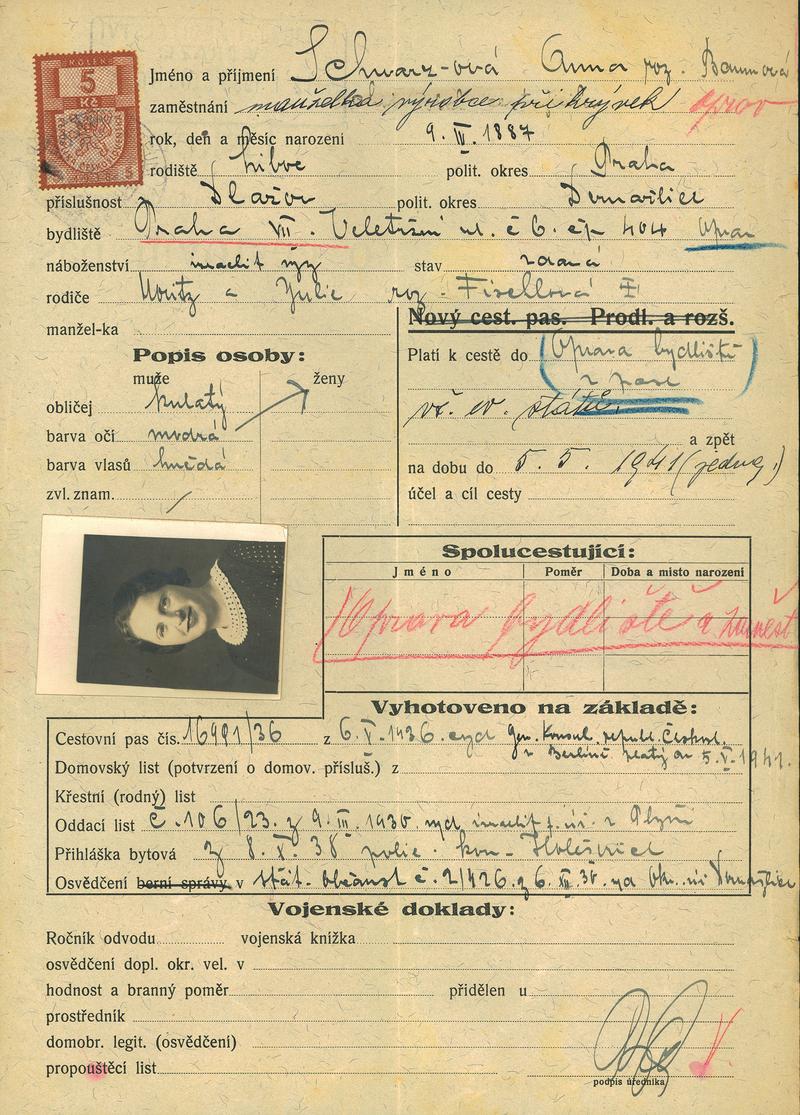 KOLEK
5
Kč
Jméno a příjmení Schwarz-ová Anna roz. Baumová
zaměstnání manželka výrobce přikrývek oprav
rok, deň a měsíc narození 9. IV. 1887
rodiště Libve polit. okres Praha
příslušnost Dlažov polit. okres Domažlice
bydliště Praha VII. Veletržní ul. č 6. čp 404 Oprav
náboženství israelit stav vdaná
rodiče Moritz a Julie roz. Fisellová
manžel-ka
Nový cest. pas. Prodl. a rozš.
Popis osoby:
muže ženy
obličej kulatý
barva očí modrá
barva vlasů hnědá
zvl. znam. /
Platí k cestě do Oprava bydliště
v pase
vš. ev. států
a zpět
na dobu do 5. 5. 1941 (jedno.)
účel a cíl cesty
Spolucestující:
Jméno Poměr Doba a místo narození
Oprava bydliště a zaměst
Vyhotoveno na základě:
Cestovní pas čís. 16491/36 z 6. V. 1936. Gen. Konsul. republ. Českosl.
v Berlíně platý do 5. V. 1941.
Domovský list (potvrzení o domov. přísluš.) z
Křestní (rodný) list
Oddací list č. 106/23. z 9. III. 1930. israelit z Plzni
Přihláška bytová z 8. X. 38 polic. kom. Holešovice
Osvědčení berní správy v stát. občanst č. 21426 z 6. XII. 30. Ok. úř Domažlice
Vojenské doklady:
Ročník odvodu vojenská knížka
osvědčení dopl. okr. vel. v
hodnost a branný poměr přidělen u
prostředník
domobr. legit. (osvědčení)
propouštěcí list
podpis úředníka